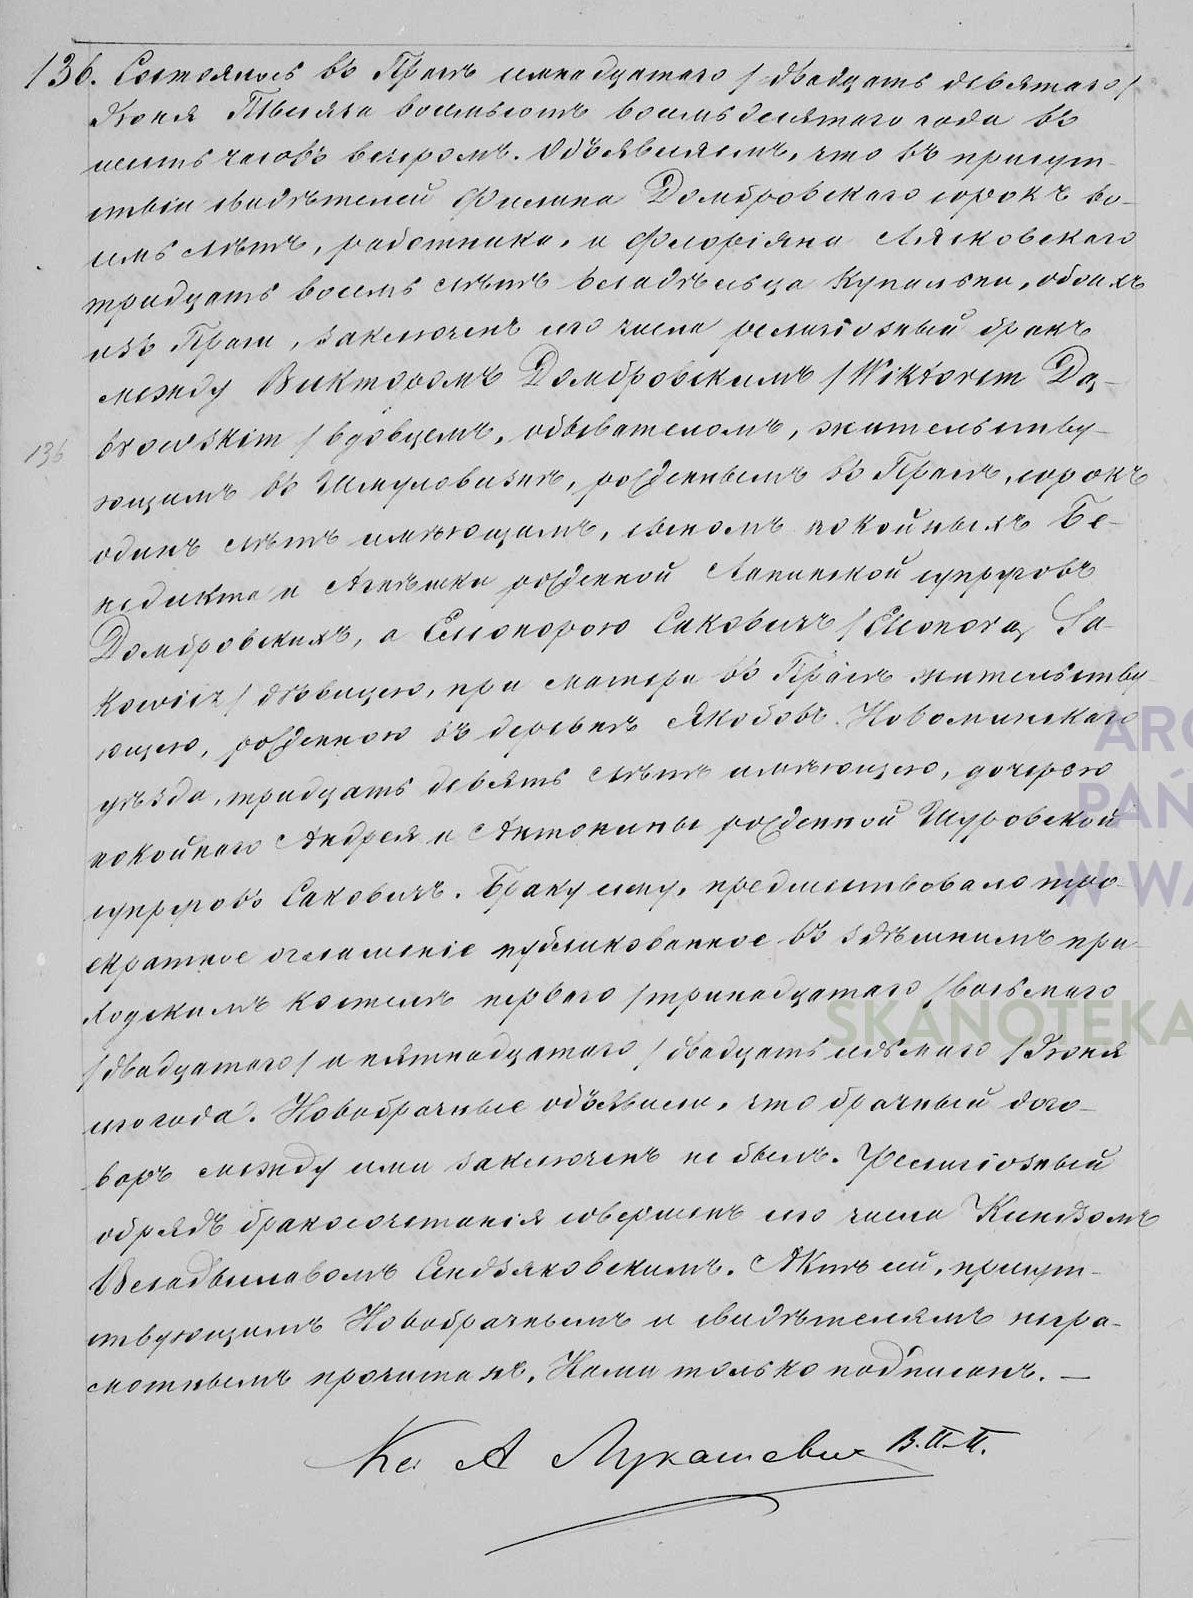 136. Состоялось въ Прагѣ семнадцатаго /двадцать девятаго/
Іюня Тысяча восемьсотъ восемьдесятаго года въ
шесть часовъ вечеромъ. Объявляемъ, что въ присут-
ствіи свидѣтелей Филипа Домбровскаго сорокъ во-
семь лѣтъ, работника, и Флоріяна Лясковскаго
тридцать восемь лѣтъ владѣльца купальни, обоихъ
изъ Праги, заключенъ сего числа религіозный бракъ
между Викторомъ Домбровскимъ /Wiktorem Dą-
browskim/ вдовцемъ, обывателомъ, жительству-
136
ющимъ въ Шмуловизнѣ, рожденнымъ въ Прагѣ, сорокъ
одинъ лѣтъ имѣющимъ, сыномъ покойныхъ Бе-
недикта и Агнѣшки рожденной Лапинской супруговъ
Домбровскихъ, а Елеонорою Саковичъ /Eleonorą Sa-
kowicz/ дѣвицею, при матери въ Прагѣ жительству-
ющею, рожденною въ деревнѣ Якобовъ Новоминскаго
уѣзда, тридцать девять лѣтъ имѣющею, дочерею
покойнаго Андрея и Антонины рожденной Щуровской
супруговъ Саковичъ. Браку сему, предшествовало тро-
екратное оглашеніе публикованное въ здѣшнимъ при-
ходскимъ костелѣ перваго /тринадцатаго/ восьмаго
/двадцатаго/ и пятнадцатаго /двадцать седьмаго/ Іюня
сего года. Новобрачные объявили, что брачный дого-
воръ между ими заключенъ не былъ. Религіозный
обрядъ бракосочетанія совершенъ сего числа Ксендзомъ
Владыславомъ Сендзяковскимъ. Актъ сей, присут-
ствующимъ Новобрачнымъ и свидѣтелямъ негра-
мотнымъ прочитанъ, Нами только подписанъ. —
Кс. А Лукашевичъ В.П.П.
ARC
PAŃ
W WA
SKANOTEKA